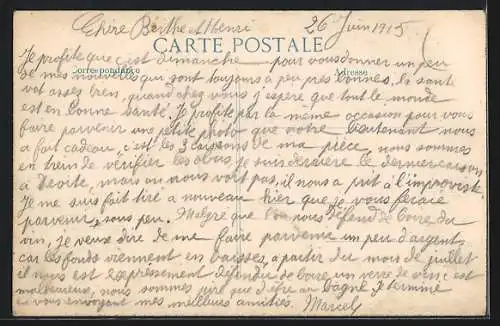 Chère Berthe et Henri 26 Juin 1915
CARTE POSTALE
Correspondance Adresse
Je profite que c'est dimanche pour vous donner un peu
de mes nouvelles qui sont toujours a peu près bonnes, la santé
va assez bien, quand chez vous j'espère que tout le monde
est en bonne santé. Je profite par la meme occasion pour vous
faire parvenir une petite photo que notre lieutenant nous
a fait cadeau, c'est les 3 de ma pièce, nous sommes
en train de vérifier les obus, je suis derrière le dernier
a droite, mais on nous voit pas, il nous a prit à l'improviste.
Je me suis fait tiré a nouveau hier que je vous ferais
parvenir sous peu. Malgré que l'on nous défend de boire du
vin, je veux dire de me faire parvenir un peu d'argent
car les fonds viennent en baisses, a partir du mois de juillet
il nous est expressément défendu de boire un verre de vin c'est
malheureux, nous sommes pire que d'être au bagne. Je termine
en vous envoyant mes meilleures amitiés. Marcel